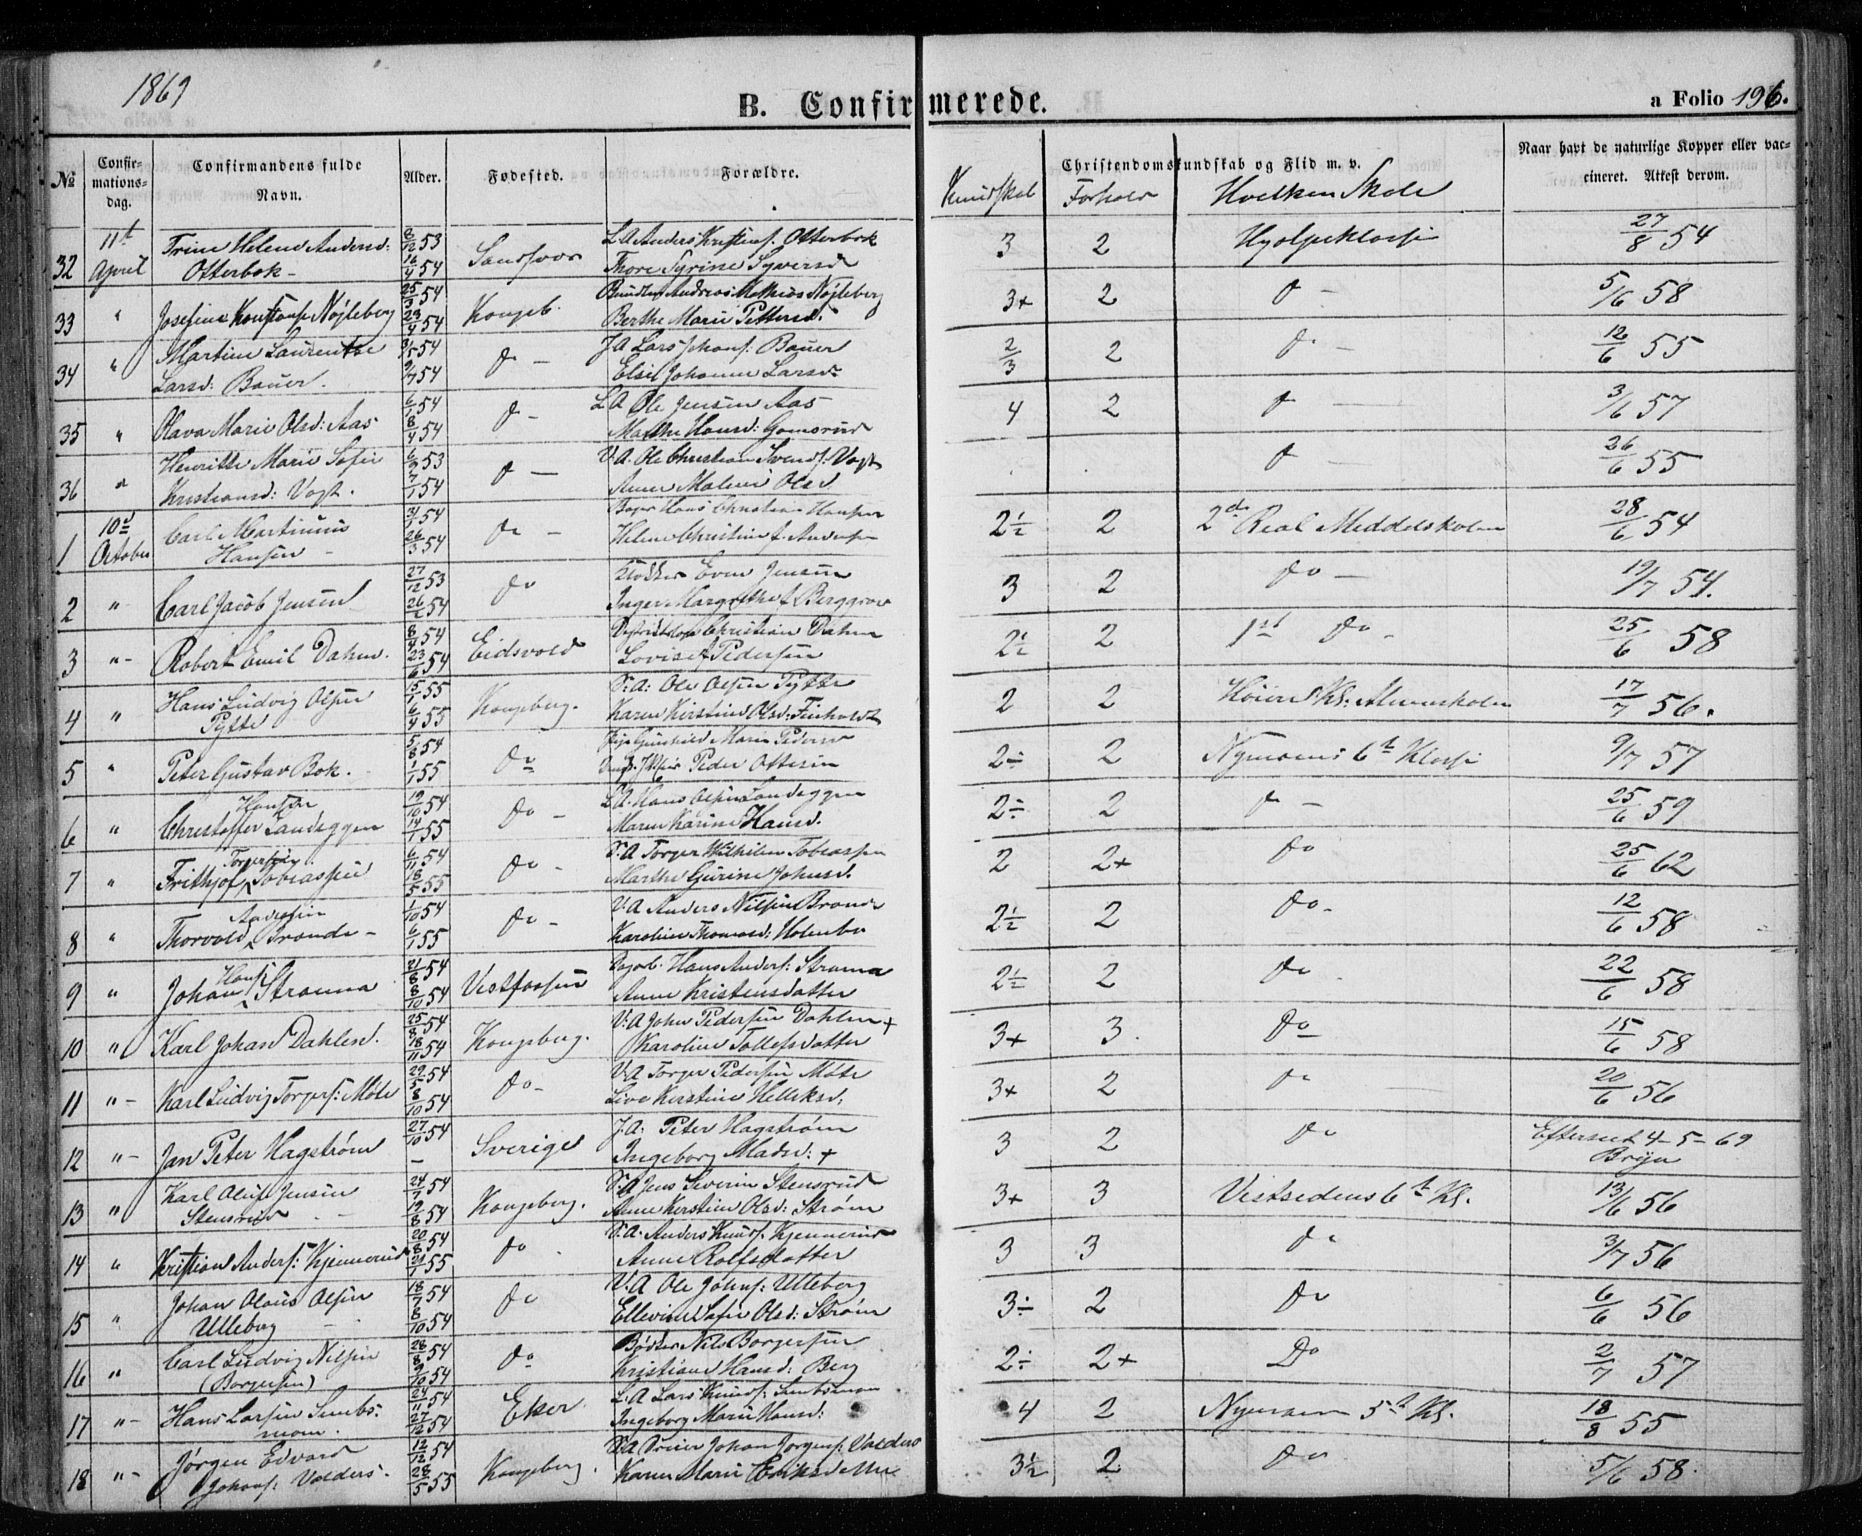 1869
B. Confirmerede.
a Folio 196.
№
Confirmations-dag.
Confirmandens fulde Navn.
Alder.
Fødested.
Forældre.
Christendomskundskab og Flid m. v.
Kundskab
Forhold
Hvilken Skole
Naar havt de naturlige Kopper eller vaccineret. Attest derom.
32 11te April Trine Helene Andersd: Otterbek - 8/12 53 16/4 54 Sandsvær L A Anders Kristens. Otterbek Thore Syrine Syversd 3 2 Hjelpeklasse 27/8 54
33 " Josefine Konstanse Nøjleberg 25/3 54 23/4 54 Kongsb. Andreas Mathias Nøjleberg Berthe Marie Pettersd. 3+ 2 do - 5/6 58
34 " Martine Laurentze Larsd: Bauer. 3/5 54 9/7 54 do - J A Lars Johans: Bauer Elsie Johanne Larsd 2/3 2 do - 12/6 55
35 " Olava Marie Olsd: Aas 6/1 54 8/4 54 do - L A Ole Jensen Aas Marthe Hansd: Gamsrud 4 2 do 3/6 57
36 " Henritte Marie Sofie Kristiansd: Vogt. 6/9 53 7/1 54 do - V. A. Ole Christian Svends: Vogt Anne Malene Olsd do 26/6 55
1 10de October Carl Martinius Hansen - 3/1 54 26/3 54 do - Bager Hans Christian Hansen Helene Christine f. Anders 2½ 2 2de Real Middelskolen 28/6 54
2 " Carl Jacob Jensen 27/12 53 26/2 54 do Klokker Even Jensen Inger Margrethe f. Berggren 3 2 do - 19/7 54.
3 " - Robert Emil Dahm. 8/4 54 23/6 54 Eidsvold Christian Dahm Lovise f Pedersen 2½ 2 1ste do - 25/6 58
4 " Hans Ludvig Olsen Pytte 15/1 55 6/4 55 Kongsberg. S: A: Ole Olsen Pytte Karen Kirstine Olsd: 2 2 Høiere Kl: Almueskolen 17/7 56.
5 " Peter Gustav Bok. 5/8 54 1/1 55 do Pige Gunhild Marie Peders Peder Ottesen 2÷ 2 Nymoens 6te Klasse 9/7 57
6 " Christoffer Hansen Landeggen 19/10 54 14/1 55 do - L A. Hans Olsen Landeggen Maren Karine Hansd. 2÷ 2 do - 25/6 59
7 " Frithjof Torgersen Tobiassen 6/11 54 18/5 55 do - S: A Torger Wilhelm Tobiassen Marthe Gurine Johnsd. 2 2+ do 25/6 62
8 " Thorvold Andersen Brande - 1/10 54 6/1 55 do - V. A Anders Nilsen Brande Karoline Thomasd: Holenba 2½ 2 do - 12/6 58
9 " Johan Hans: Stramma 21/8 54 8/10 54 Vestfossen Hans Anders: Stramma Anne Kristensdatter 2½ 2 do 22/6 58
10 " Karl Johan Dahlen. 25/8 54 18/11 54 Kongsberg. V: A John Pedersen Dahlen + Karoline Tollefsdatter 3+ 3. do 15/6 58
11 " - Karl Ludvig Torgers: Møte 29/5 54 8/10 54 do - V. A Torger Pedersen Møte Live Kerstine Helleksd. 3+ 2 do 20/6 56
12 " - Jan Peter Hagstrøm 27/10 54 - Sverige J. A: Peter Hagstrøm Ingeborg Madsd: + 3 2 do Efterseet 4-5-69 Bryn
13 " Karl Oluf Jensen Stensrud 24/7 54 19/8 54 Kongsberg. S: A Jens Severin Stensrud Anne Kerstine Olsd: Strøm 3+ 3 Vestsidens 6te Kl. 13/6 56
14 " Kristian Anders: Kjennerud 20/8 54 21/1 55 do S. A: Anders Knuds: Kjennerud Anne Rolfsdatter 3 3 do 3/7 56
15 " Johan Olaus Olsen Ulleberg 18/7 54 8/10 54 do V. A Ole Johns: Ulleberg Ellevine Sofie Olsd: Strøm 3÷ 2 do 6/6 56
16 " Carl Ludvig Nilsen (Borgersen) 28/8 54 9/10 54 do Bødker Nils Borgersen Kristiane Hansd: Berg 2÷ 2+ Do 2/7 57
17 " - Hans Larsen Smedsmoen. 24/11 54 27/12 54 Eker L: A Lars Knuds: Smedsmoen Ingeborg Marie Hansd: 4 2 Nymoen 5te Kl. 18/8 55
18 " - Jørgen Edvard Johans: Valders. 12/12 54 28/5 55 Kongsberg. Johan Jørgens: Valders Karen Marie Eriksdatter 3½ 2 do 5/6 58.